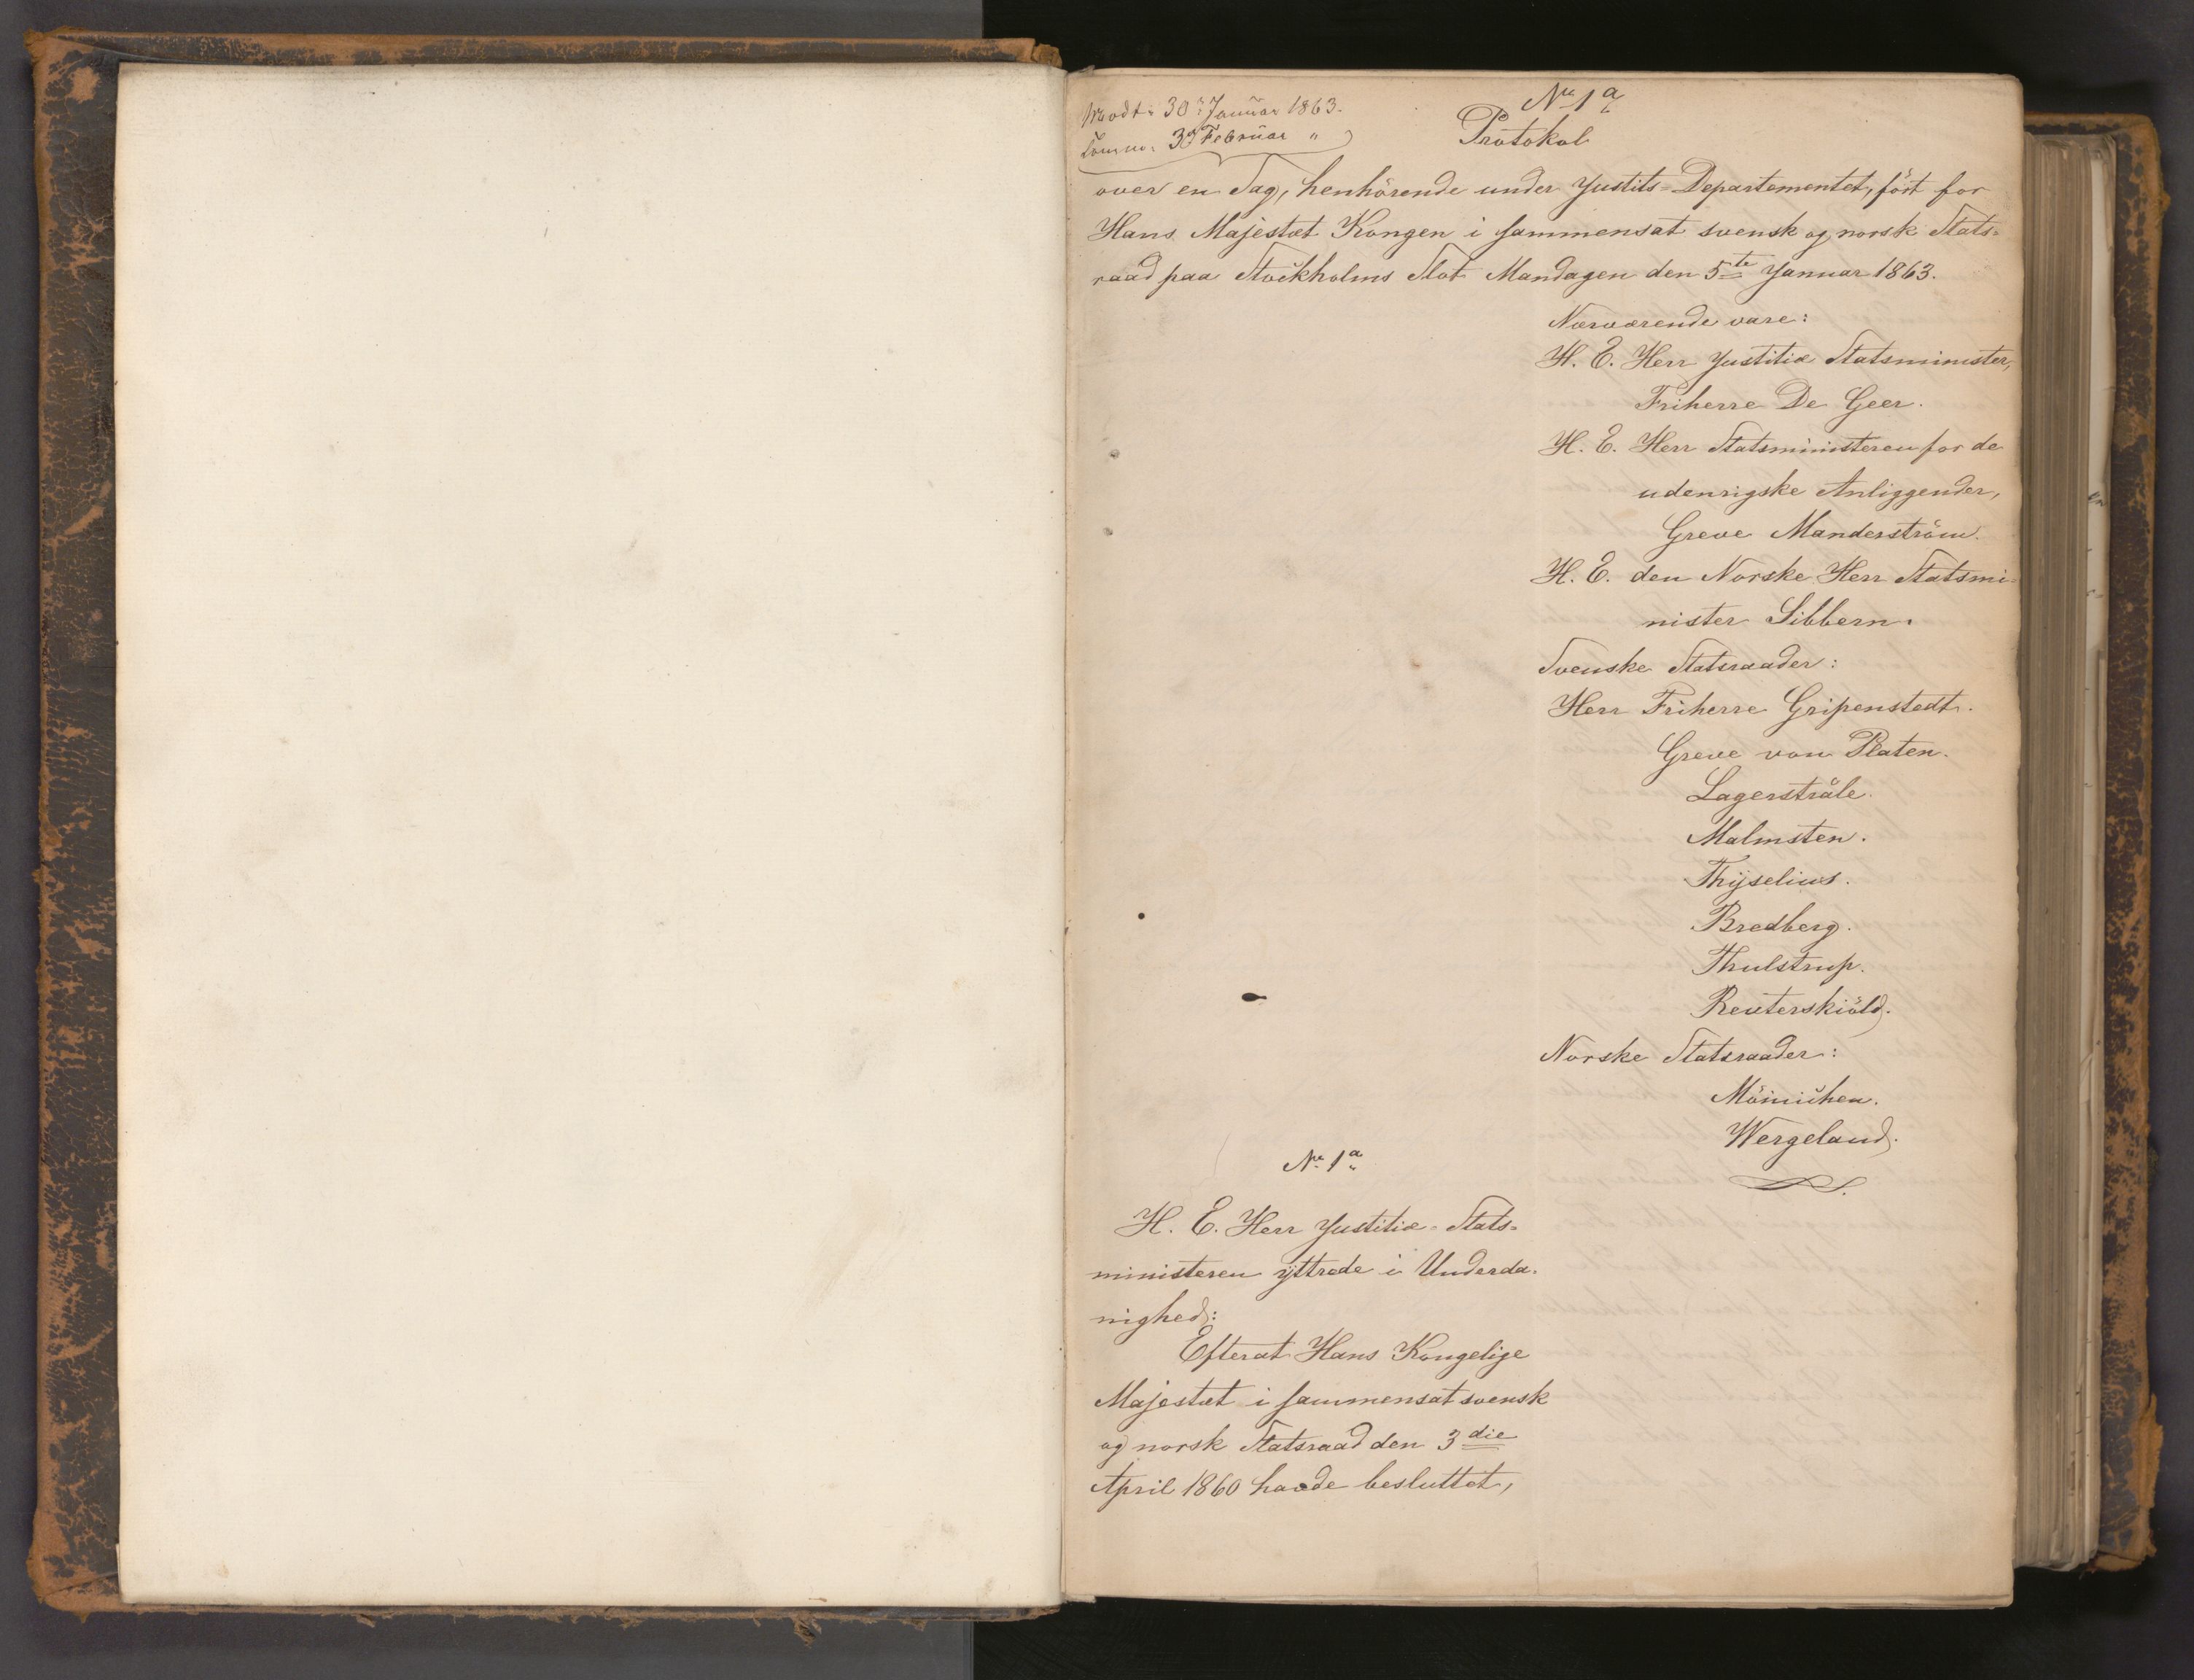 No 1 a
Modt. 30 Januar 1863.
Comm. 3 Februar "
Protokol
over en Sag, henhörende under Justits-Departementet, fört for
Hans Majestæt Kongen i sammensat svensk og norsk Stats-
raad paa Stockholms Slot Mandagen den 5te Januar 1863.
Nærværende vare:
H. E. Herr Justitiæ Statsminister,
Friherre De Geer.
H. E. Herr Statsministeren for de
udenrigske Anliggender,
Greve Manderström.
H. E. den Norske Herr Statsmi-
nister Sibbern.
Svenske Statsraader:
Herr Friherre Gripenstedt.
Greve von Platen.
Lagerstråle.
Malmsten.
Thyselius.
Bredberg.
Thulstrup.
Reuterskiöld.
Norske Statsraader:
Mönichen.
Wergeland.
No 1 a
H. E. Herr Justitiæ-Stats-
ministeren yttrede i Underda-
nighed:
Efterat Hans Kongelige
Majestæt i sammensat svensk
og norsk Statsraad den 3die
April 1860 havde besluttet,